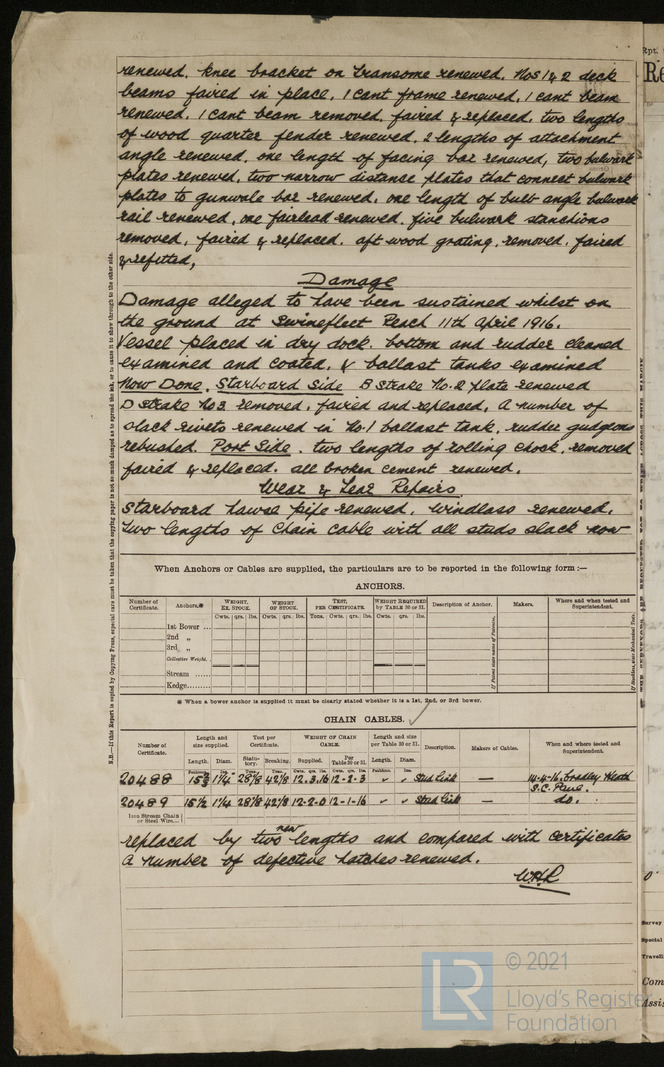 renewed. knee bracket on transome renewed. Nos 1 & 2 deck
beams faired in place, 1 cant frame renewed, 1 cant beam
renewed. 1 cant beam removed, faired & replaced, two lengths
of wood quarter fender renewed, 2 lengths of attachment
angle renewed, one length of facing bar renewed, two bulwark
plates renewed, two narrow distance plates that connect bulwark
plates to gunwale bar renewed. one length of bulb angle bulwark
rail renewed, one fairlead renewed. five bulwark stanchions
removed, faired & replaced. aft wood grating, removed, faired
& refitted,
Damage
Damage alleged to have been sustained whilst on
the ground at Swinefleet Reach 11th April 1916.
Vessel placed in dry dock bottom and rudder cleaned
examined and coated, & ballast tanks examined
Now Done. Starboard Side B Strake No. 2 plate renewed
D Strake No 3 removed, faired and replaced, A number of
slack rivets renewed in No. 1 ballast tank, rudder gudgeons
rebushed. Port Side. two lengths of rolling chock, removed
faired & replaced. all broken cement renewed.
Wear & Tear Repairs
Starboard hawse pipe renewed. windlass renewed.
Two lengths of Chain cable with all studs slack now
When Anchors or Cables are supplied, the particulars are to be reported in the following form:—
ANCHORS.
Number of Certificate. Anchors.* WEIGHT, EX. STOCK. WEIGHT OF STOCK. TEST, PER CERTIFICATE. WEIGHT REQUIRED by TABLE 30 or 31. Description of Anchor. Makers. Where and when tested and Superintendent.
Cwts. qrs. lbs. Cwts. qrs. lbs. Tons. Cwts. qrs. lbs. Cwts. qrs. lbs.
1st Bower ...
2nd „
3rd „
Collective Weight.
Stream ......
Kedge......
* When a bower anchor is supplied it must be clearly stated whether it is a 1st, 2nd, or 3rd bower.
CHAIN CABLES.
Number of Certificate. Length and size supplied. Test per Certificate. WEIGHT OF CHAIN CABLE. Length and size per Table 30 or 31. Description. Makers of Cables. When and where tested and Superintendent.
Length. Diam. Statutory. Breaking. Supplied. Per Table 30 or 31. Length. Diam.
20488 1 1/4 28 1/8 42 1/8 12.3.16 12-2-3 Stud Link — 14-4-16. Bradley Heath
S.C. Paul.
20489 15 1/2 1 1/4 28 1/8 42 1/8 12-2-0 12-1-16 Stud Link — do.
Iron Stream Chain or Steel Wire...
replaced by two new lengths and compared with certificates
A number of defective hatches renewed.
WHR
© 2021
LR
Lloyd's Register
Foundation